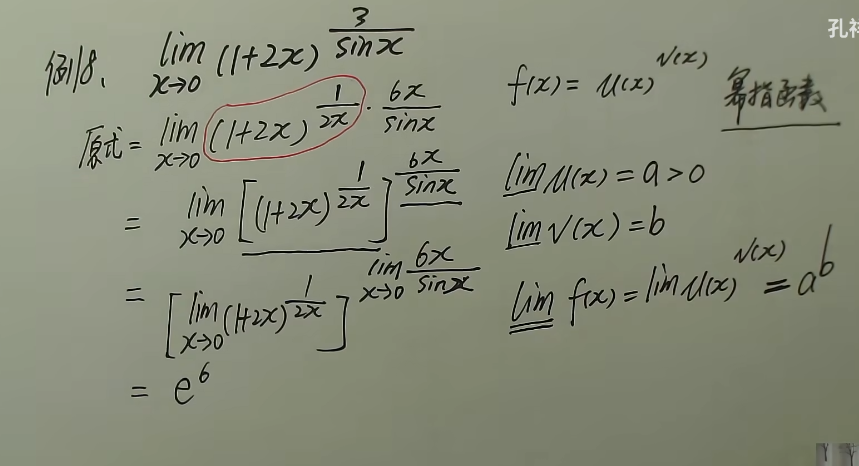 孔祥
例8、 lim x→0 (1+2x)^(3/sinx)
原式 = lim x→0 (1+2x)^(1/2x · 6x/sinx)
= lim x→0 [(1+2x)^(1/2x)]^(6x/sinx)
= [lim x→0 (1+2x)^(1/2x)]^(lim x→0 6x/sinx)
= e^6
f(x) = u(x)^v(x) 幂指函数
lim u(x) = a > 0
lim v(x) = b
lim f(x) = lim u(x)^v(x) = a^b